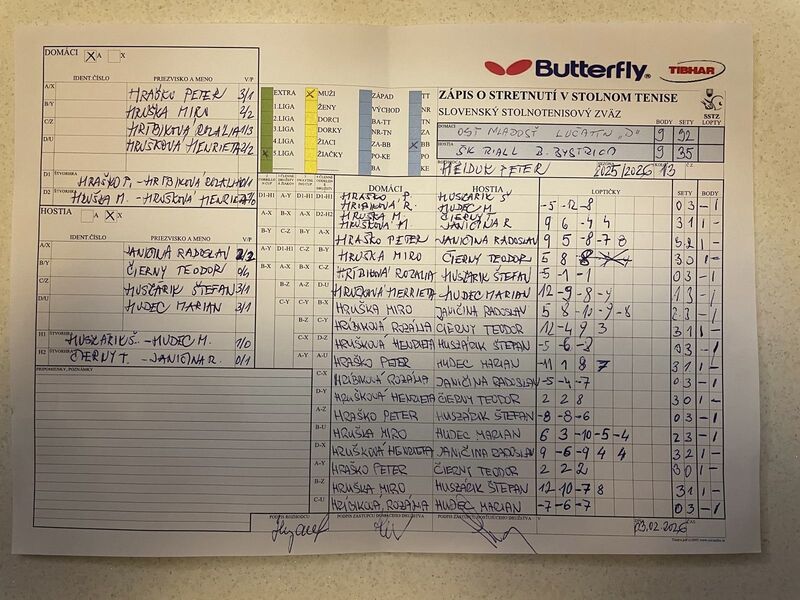 DOMÁCI X A X
IDENT.ČÍSLO PRIEZVISKO A MENO V/P
A/X HRAŠKO PETER 3/1
B/Y HRUŠKA MIRO 2/2
C/Z HRÍBIKOVÁ ROZÁLIA 1/3
D/U HRUŠKOVÁ HENRIETA 2/2
D1 ŠTVORHRA HRAŠKO P. - HRÍBIKOVÁ ROZÁLIA
D2 ŠTVORHRA HRUŠKA M. - HRUŠKOVÁ HENRIETA
HOSTIA A X X
IDENT.ČÍSLO PRIEZVISKO A MENO V/P
A/X JANIČINA RADOSLAV 2/2
B/Y ČIERNY TEODOR 0/4
C/Z HUSZÁRIK ŠTEFAN 3/1
D/U HUDEC MARIAN 3/1
H1 ŠTVORHRA HUSZÁRIK Š. - HUDEC M. 1/0
H2 ŠTVORHRA ČIERNY T. - JANIČINA R. 0/1
PRIPOMIENKY, POZNÁMKY
Butterfly TIBHAR
EXTRA X MUŽI ZÁPAD TT
1.LIGA ŽENY VÝCHOD NR
2.LIGA DORCI BA-TT TN
3.LIGA DORKY NR-TN ZA
4.LIGA ŽIACI ZA-BB X BB
X 5.LIGA ŽIAČKY PO-KE PO
BA KE
ZÁPIS O STRETNUTÍ V STOLNOM TENISE
SLOVENSKÝ STOLNOTENISOVÝ ZVÄZ
SSTZ
BODY SETY LOPTY
DOMÁCI OŠT MLADOSŤ LUČATÍN "D" 9 32
HOSTIA ŠK RIALL B. BYSTRICA 9 35
HEJDUK PETER SEZÓNA 2025/2026 Č.Z. 13
DOMÁCI HOSTIA LOPTIČKY SETY BODY
D1-H1 HRAŠKO P. HRÍBIKOVÁ R. HUSZÁRIK Š HUDEC M. -5 -12 -8 0 3 - 1
HRUŠKA M. HRUŠKOVÁ H. ČIERNY T. JANIČINA R 9 6 -4 4 3 1 1 -
HRAŠKO PETER JANIČINA RADOSLAV 9 5 -8 -7 8 3 2 1 -
HRUŠKA MIRO ČIERNY TEODOR 5 8 8 3 0 1 -
HRÍBIKOVÁ ROZÁLIA HUSZÁRIK ŠTEFAN -5 -1 -1 0 3 - 1
HRUŠKOVÁ HENRIETA HUDEC MARIAN 12 -9 -8 -4 1 3 - 1
HRUŠKA MIRO JANIČINA RADOSLAV 5 8 -10 -9 -8 2 3 - 1
HRÍBIKOVÁ ROZÁLIA ČIERNY TEODOR 12 -4 9 3 3 1 1 -
HRUŠKOVÁ HENRIETA HUSZÁRIK ŠTEFAN -5 -6 -2 0 3 - 1
HRAŠKO PETER HUDEC MARIAN -11 1 8 7 3 1 1 -
C-X HRÍBIKOVÁ ROZÁLIA JANIČINA RADOSLAV -5 -4 -7 0 3 - 1
D-Y HRUŠKOVÁ HENRIETA ČIERNY TEODOR 2 2 8 3 0 1 -
A-Z HRAŠKO PETER HUSZÁRIK ŠTEFAN -8 -8 -6 0 3 - 1
B-U HRUŠKA MIRO HUDEC MARIAN 6 3 -10 -5 -4 2 3 - 1
D-X HRUŠKOVÁ HENRIETA JANIČINA RADOSLAV 9 -6 -9 4 4 3 2 1 -
A-Y HRAŠKO PETER ČIERNY TEODOR 2 2 2 3 0 1 -
B-Z HRUŠKA MIRO HUSZÁRIK ŠTEFAN 12 10 -7 8 3 1 1 -
C-U HRÍBIKOVÁ ROZÁLIA HUDEC MARIAN -7 -6 -7 0 3 - 1
PODPIS ROZHODCU PODPIS ZÁSTUPCU DOMÁCEHO DRUŽSTVA PODPIS ZÁSTUPCU HOSŤUJÚCEHO DRUŽSTVA V ČAS
23.02.2026